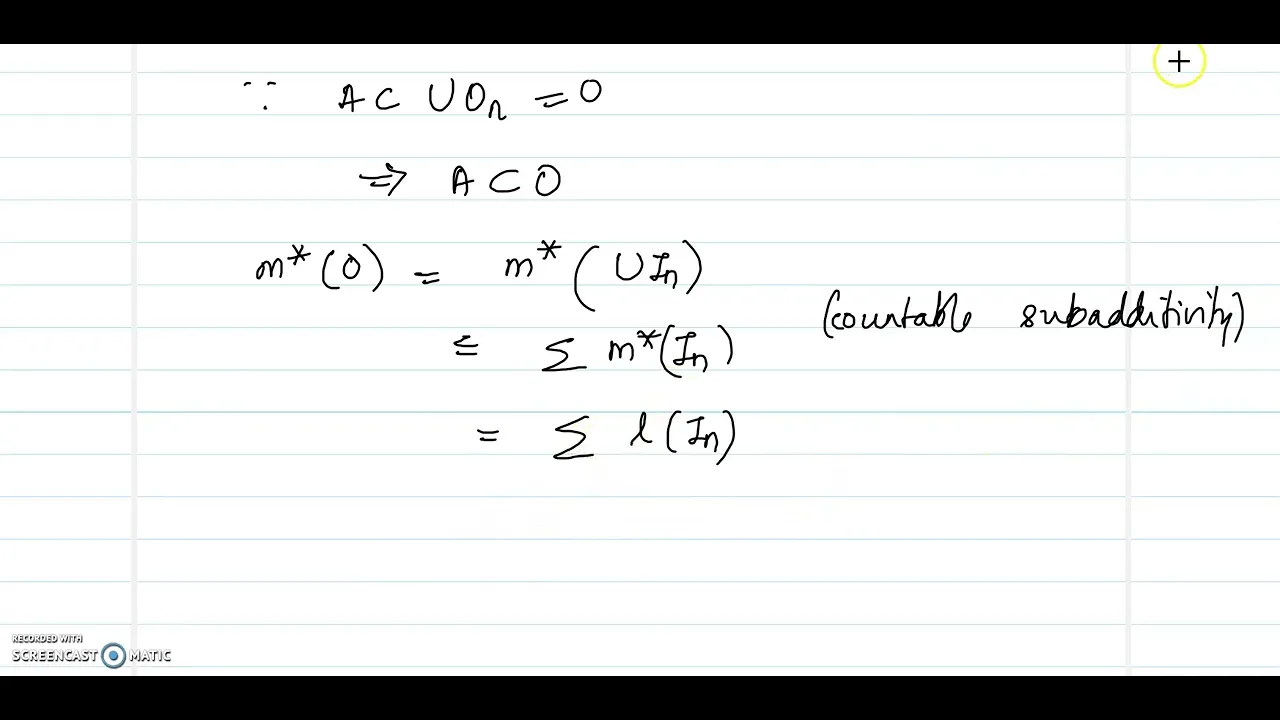 ∵ A ⊂ ∪Oₙ = O
⇒ A ⊂ O
m*(O) = m*(∪Iₙ)
≤ Σ m*(Iₙ) (countable subadditivity)
= Σ l(Iₙ)
RECORDED WITH
SCREENCAST MATIC